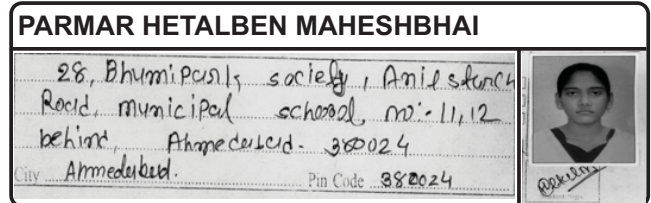 PARMAR HETALBEN MAHESHBHAI
28, Bhumipark society, Anil starch
Road, municipal school, no:-11,12
behind, Ahmedabad- 380024
City Ahmedabad.
Pin Code 380024